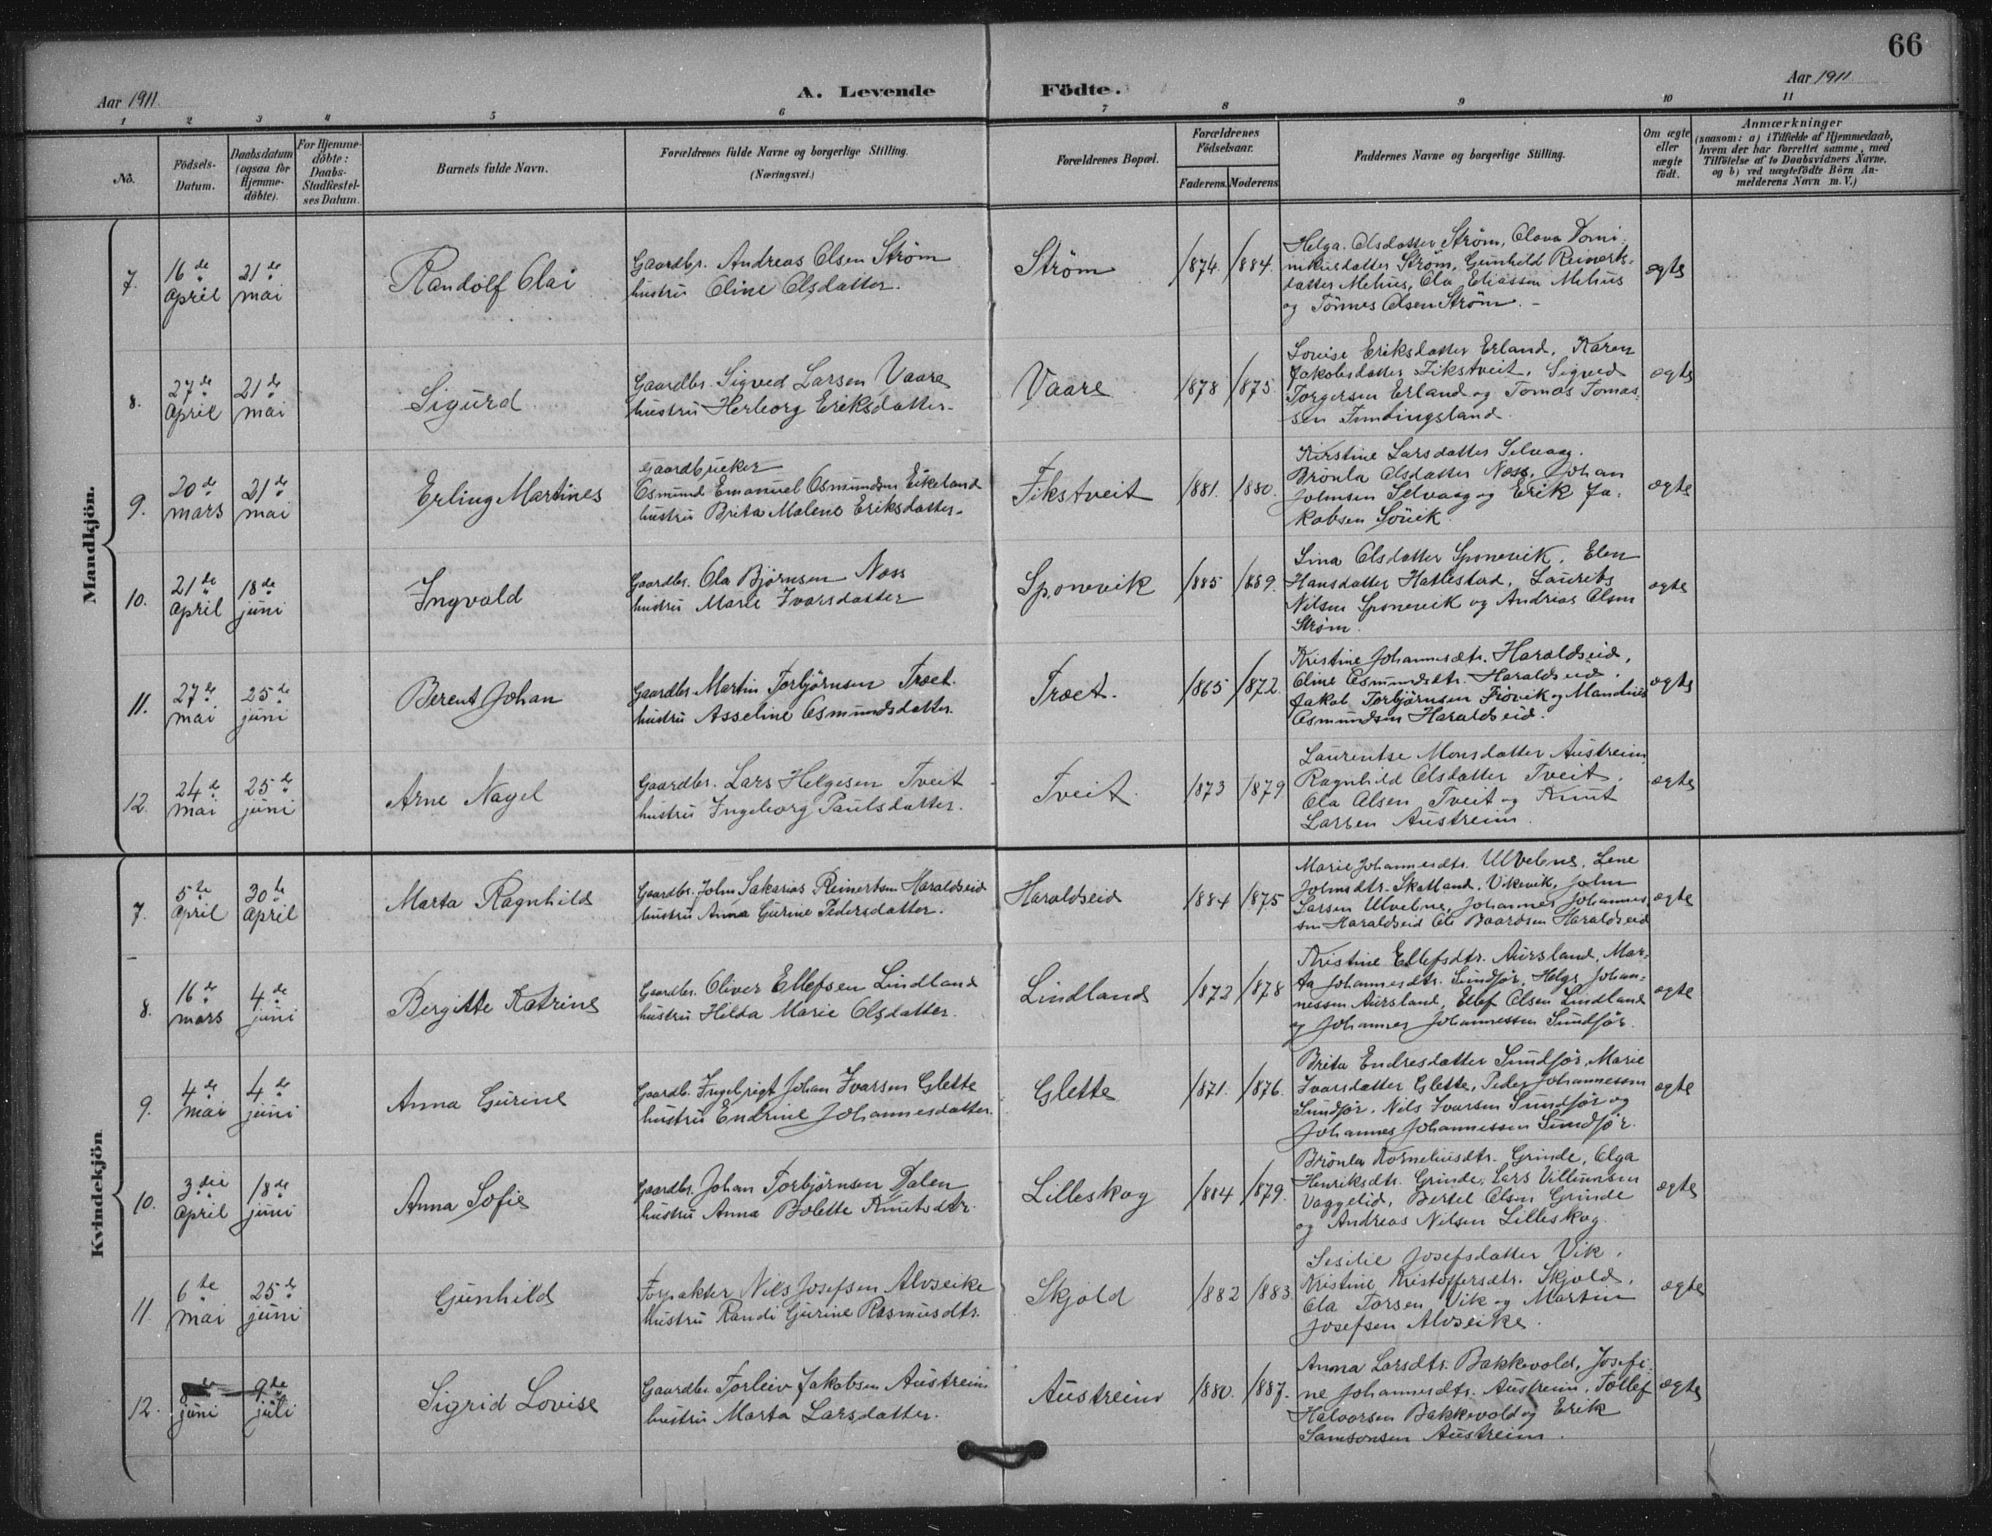 66
Aar 1911.
A. Levende Födte.
Aar 1911
1 2 3 4 5 6 7 8 9 10 11
No.
Födsels-
Datum.
Daabsdatum
(ogsaa for
Hjemme-
döbte).
For Hjemme-
döbte:
Daabs-
Stadfæstel-
ses Datum.
Barnets fulde Navn.
Forældrenes fulde Navne og borgerlige Stilling.
(Næringsvei.)
Forældrenes Bopæl.
Forældrenes
Födselsaar.
Faderens. Moderens.
Faddernes Navne og borgerlige Stilling.
Om ægte
eller
uægte
födt.
Anmærkninger
(saasom: a) i Tilfælde af Hjemmedaab,
hvem der har forrettet samme, med
Tilföielse af to Daabsvidners Navne.
og b) ved uægtefödte Börn An-
melderens Navn m.V.)
Mandkjön.
7.
16de
april
21de
mai
Randolf Olai
Gaardbr. Andreas Olsen Strøm
hustru Oline Olsdatter.
Strøm
1874. 1884.
Helga Olsdatter Strøm, Olava Domi-
nikusdatter Strøm, Gunhild Reinerts-
datter Mehus, Ola Eliassen Mehus
og Tønnes Olsen Strøm. -
ægte
8.
27de
april
21de
mai
Sigurd
Gaardbr. Sigved Larsen Vaare
hustru Herborg Eriksdatter.
Vaare
1878 1875.
Lovise Eriksdatter Erland, Karen
Jakobsdatter Fikstveit, Sigved
Torgersen Erland og Tomas Tomas-
sen
ægte
9.
20de
mars
21de
mai
Erling Martines
Gaardbruker
Osmund Emanuel Osmundsen Eikeland
hustru Brita Malene Eriksdatter.
Fikstveit
1881. 1880.
Kirstine Larsdatter Selvaag.
Brönla Olsdatter Næss, Johan
Johnsen Selvaag og Erik Ja-
kobsen Sövik.
ægte
10.
21de
april
18de
juni
Ingvald
Gaardbr. Ola Bjørnsen Næss
hustru Marie Ivarsdatter
Sponevik
1885 1889.
Lina Olsdatter Sponevik, Elen
Hansdatter Hatlestad, Laurits
Nilsen Sponevik og Andreas Olsen
Strøm.
ægte
11.
27de
mai
25de
juni
Berent Johan
Gaardbr. Martin Torbjørnsen Træet.
hustru Asseline Osmundsdatter.
Træet.
1865 1872.
Kristine Johannesdtr. Haraldseid,
Oline Osmundsdtr. Haraldseid.
Jakob Torbjørnsen Frövik og Mandius
Osmundsen Haraldseid.
ægte
12.
24de
mai
25de
juni
Arne Nagel
Gaardbr. Lars Helgesen Tveit
hustru Ingeborg Paulsdatter.
Tveit.
1873 1879
Laurentse Monsdatter Austreim
Ragnhild Olsdatter Tveit.
Ola Olsen Tveit og Knut
Larsen Austreim.
ægte
Kvindekjön
7.
5te
April
30te
April
Marta Ragnhild
Gaardbr. John Sakarias Reinertsen Haraldseid
hustru Anna Gurine Pedersdatter.
Haraldseid
1884 1875
Marie Johannesdtr. Ulvebne, Lene
Johnsdtr. Skatland, Vikevik, John
Larsen Ulvebne, Johannes Johannes
sen Haraldseid Ole Baardsen Haraldseid
ægte
8.
16de
mars
4de
juni
Bergitte Katrine
Gaardbr. Oliver Ellefsen Lindland
hustru Hilda Marie Olsdatter.
Lindland
1872 1878
Kristine Ellefsdtr. Aursland, Mar-
ta Johannesdtr. Sundför, Helge Johan-
nessen Aursland, Ellef Olsen Lindland
og Johannes Johannessen Sundför.
ægte
9.
4de
mai
4de
juni
Anna Gurine
Gaardb. Ingebrigt Johan Ivarsen Glette
hustru Endrine Johannesdatter.
Glette
1871. 1876.
Brita Endresdatter Sundför, Marie
Ivarsdatter Glette, Peder Johannessen
Sundför, Nils Ivarsen Sundför og
Johannes Johannessen Sundför.
ægte
10.
3die
april
18de
juni
Anna Sofie
Gaardbr. Johan Torbjørnsen Dalen
hustru Anna Bolette Knutsdtr.
Lilleskog
1884 1879.
Brönla Korneliusdtr. Grinde, Olga
Henriksdtr. Grinde, Lars Villumsen
Vaggelid, Bertel Olsen Grinde
og Andreas Nilsen Lilleskog.
ægte
11
6te
mai
25de
juni
Gunhild
Forpakter Nils Josefsen Alvseike
Hustru Randi Gurine Rasmusdtr.
Skjold
1882 1883.
Sesilie Josefsdatter Vik,
Kristine Kristoffersdtr. Skjold,
Ola Torsen Vik og Martin
Josefsen Alvseike.
ægte
12.
juni
9de
juli
Sigrid Lovise
Gaardbr. Torleiv Jakobsen Austreim
hustru Marta Larsdatter.
Austreim
1880. 1887.
Anna Larsdtr. Bakkevold, Josefi-
ne Johannesdtr. Austreim, Tollef
Halvorsen Bakkevold og Erik
Samsonsen Austreim.
ægte